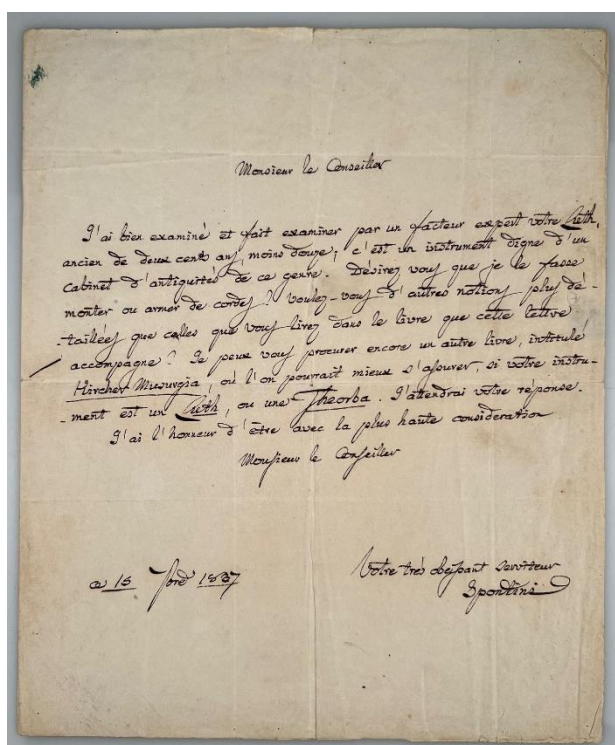 Monsieur le Conseiller
J'ai bien examiné et fait examiner par un facteur expert votre Luth,
ancien de deux cents ans, moins douze, c'est un instrument digne d'un
cabinet d'antiquités de ce genre. Désirez vous que je le fasse
monter ou armer de cordes? voulez-vous d'autres notions plus dé-
-taillées que celles que vous lirez dans le livre que cette lettre
accompagne? Je peux vous procurer encore un autre livre, intitulé
Kircher Musurgia, où l'on pourrait mieux s'assurer, si votre instru-
-ment est un Luth, ou une Theorba. J'attendrai votre réponse.
J'ai l'honneur d'être avec la plus haute consideration
Monsieur le Conseiller
Votre très obeissant serviteur
Spontini
ce 15 1837